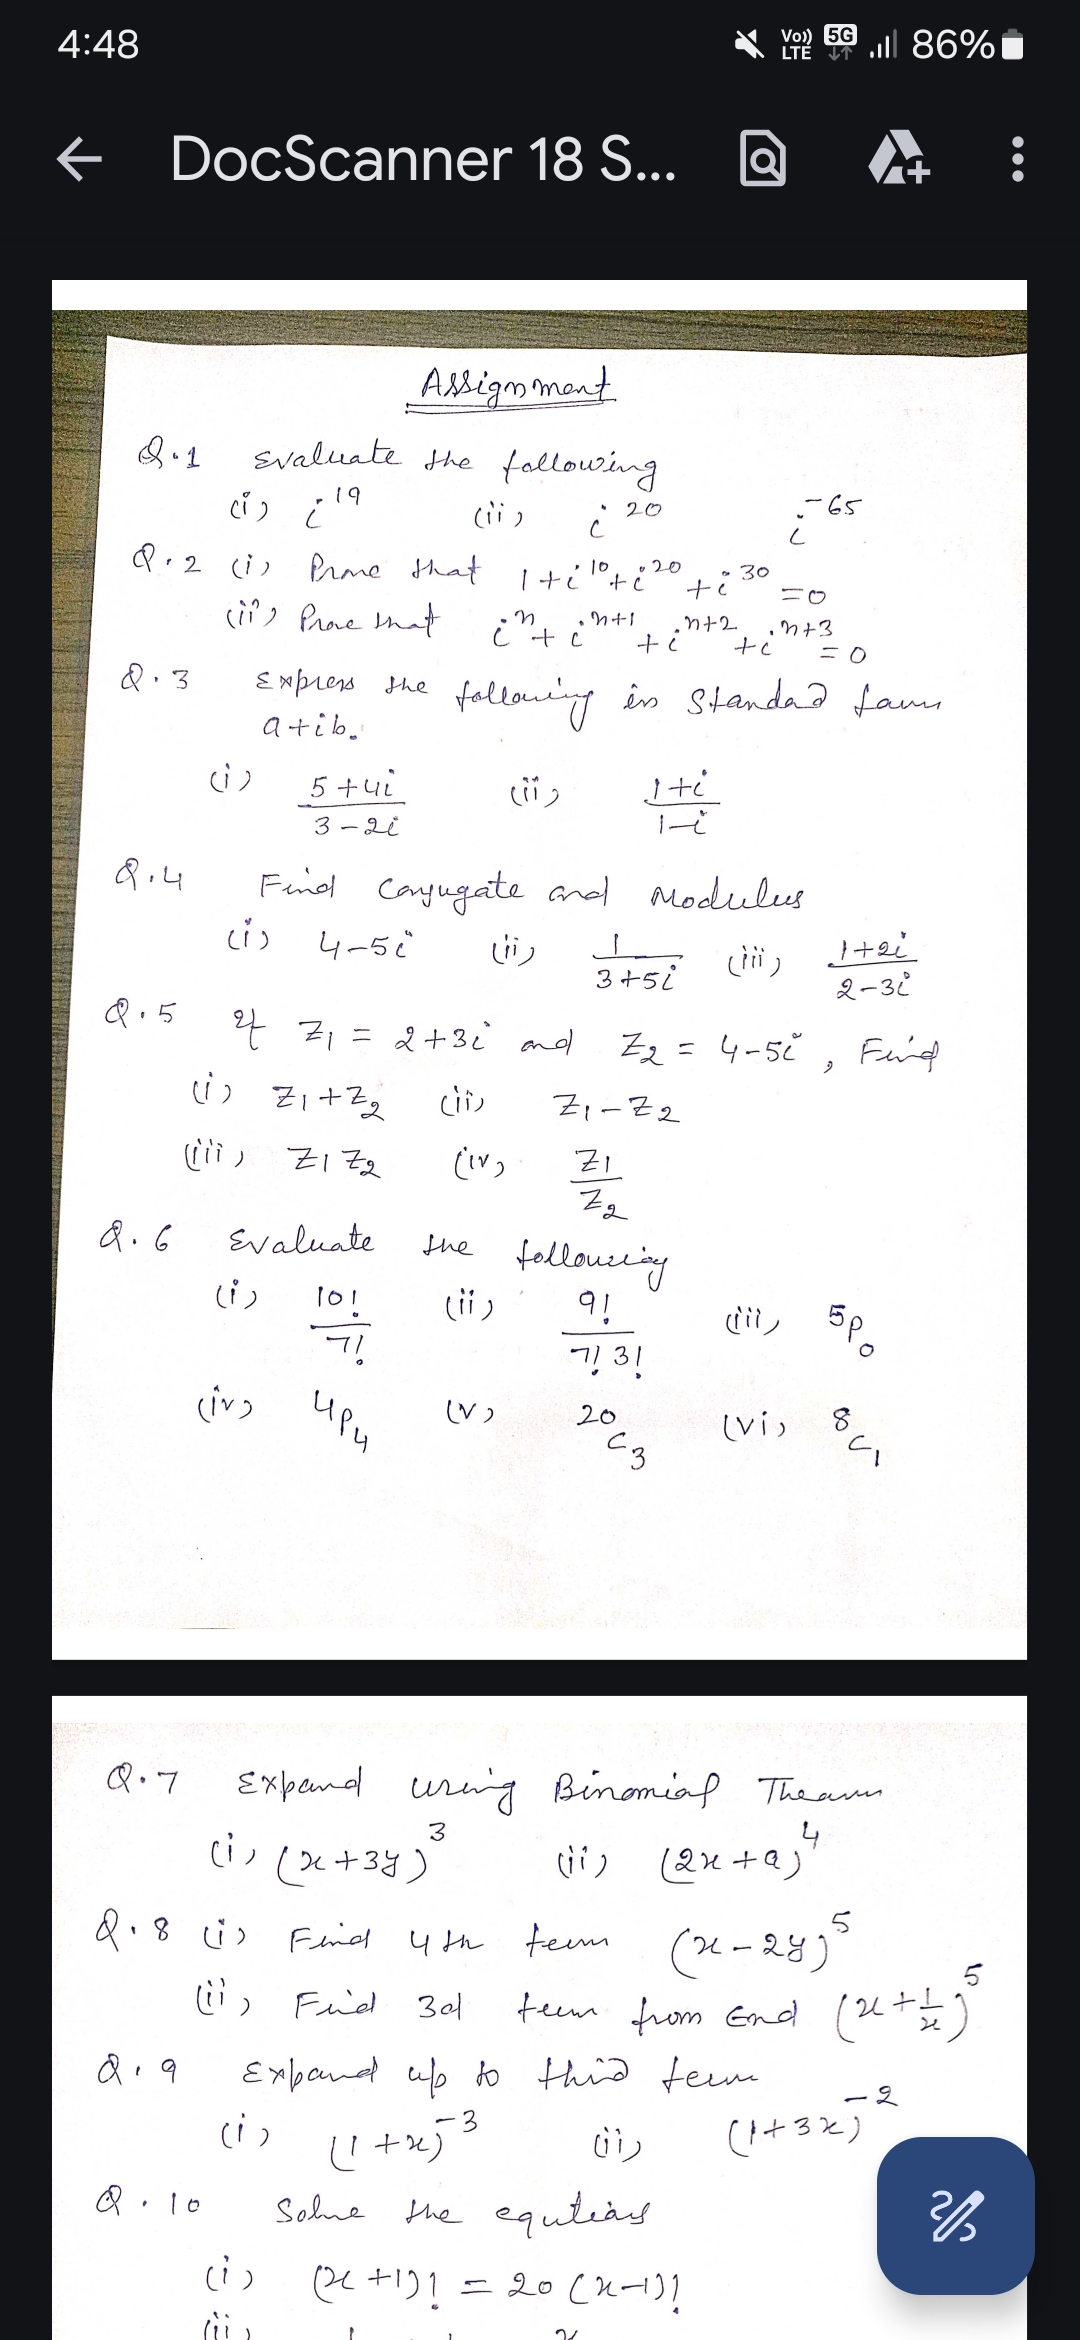 4:48 Vo)) LTE 5G 86%
DocScanner 18 S...
Assignment
Q.1 Evaluate the following
(i) i^19 (ii) i^20 i^-65
Q.2 (i) Prove that 1+i^10+i^20+i^30=0
(ii) Prove that i^n+i^n+1+i^n+2+i^n+3=0
Q.3 Express the following in Standad form
a+ib.
(i) 5+4i/3-2i (ii) 1+i/1-i
Q.4 Find Conjugate and Modulus
(i) 4-5i (ii) 1/3+5i (iii) 1+2i/2-3i
Q.5 If Z1 = 2+3i and Z2 = 4-5i, Find
(i) Z1+Z2 (ii) Z1-Z2
(iii) Z1 Z2 (iv) Z1/Z2
Q.6 Evaluate the following
(i) 10!/7! (ii) 9!/7! 3! (iii) 5P0
(iv) 4P4 (v) 20C3 (vi) 8C1
Q.7 Expand using Binomial Theorem
(i) (x+3y)^3 (ii) (2x+a)^4
Q.8 (i) Find 4th term (x-2y)^5
(ii) Find 3d term from End (x+1/x)^5
Q.9 Expand up to third term
(i) (1+x)^-3 (ii) (1+3x)^-2
Q.10 Solve the equtions
(i) (x+1)! = 20(x-1)!
(ii)